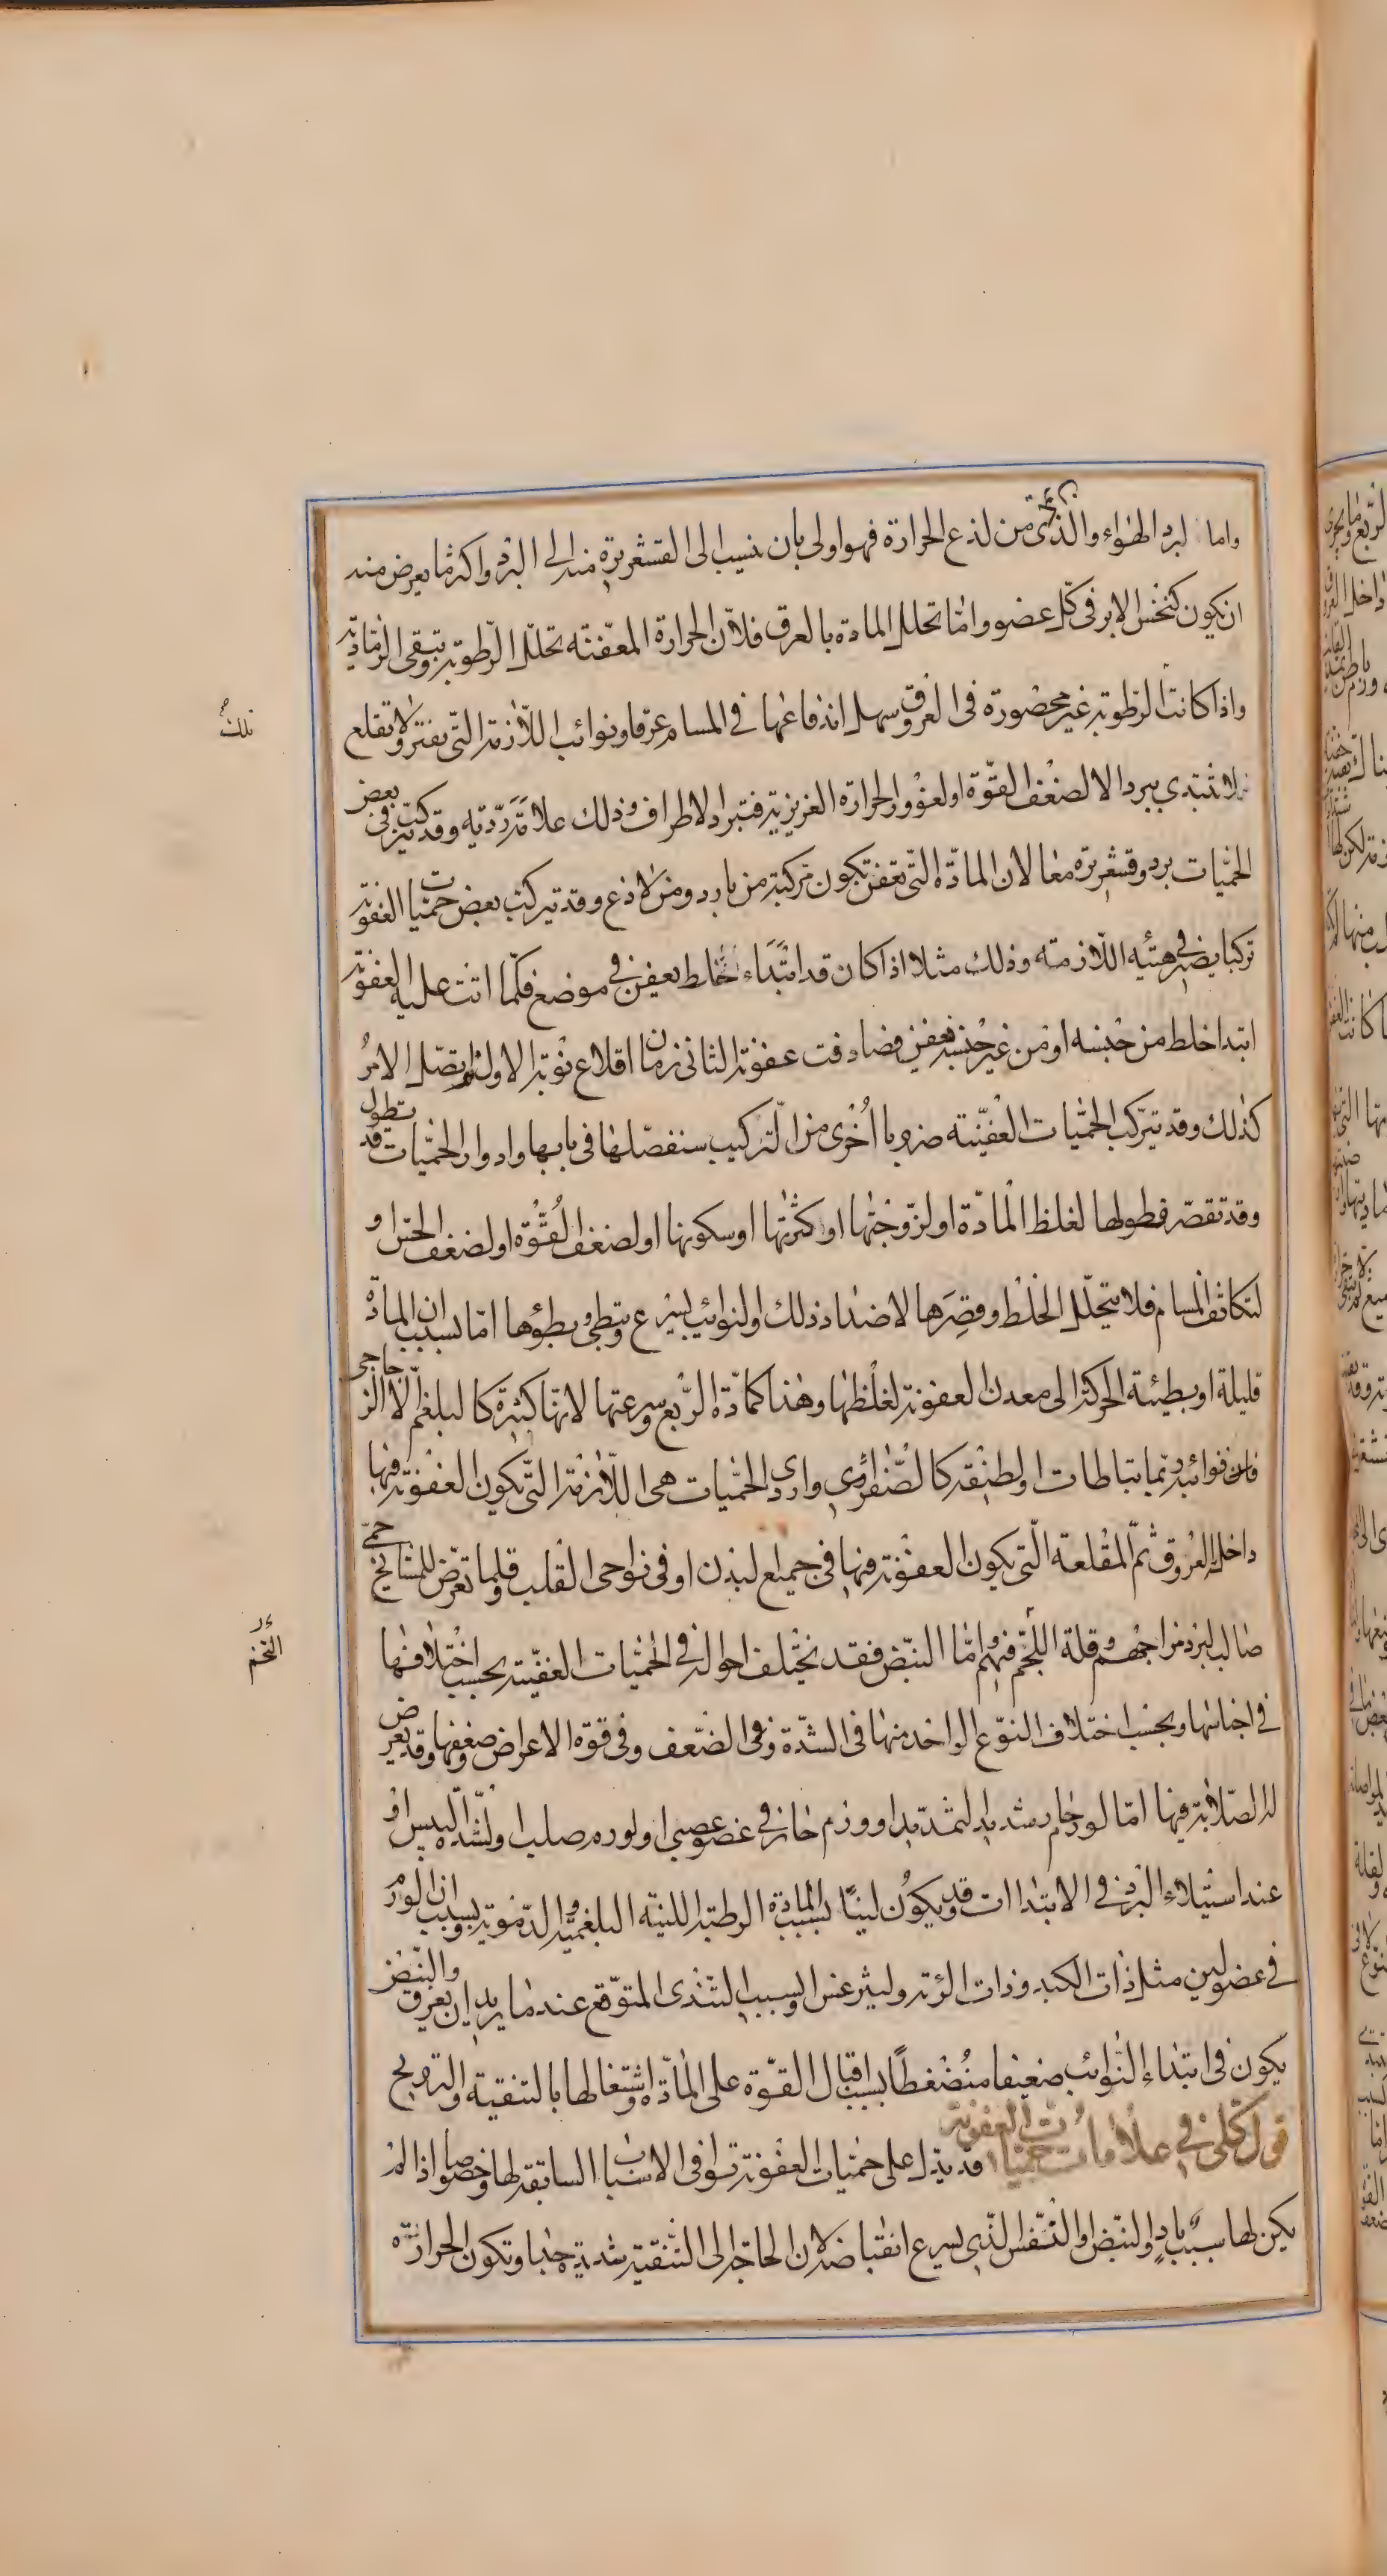 واما لبرد الهواء والذي يجئ من لذع الحرارة فهو اولى بان ينسب الى القشعريرة منه الى البرد واكثر ما يعرض منه
ان يكون كنخس الابر في كل عضو واما تحلل المادة بالعرق فلان الحرارة المعفنه تحلل الرطوبة وتبقى الرمادية
واذا كانت الرطوبة غير محصورة في العروق سهل اندفاعها في المسام عرقا ونوائب اللازمة التي تفتر ولا تقلع
تلك
فلا تبتدي ببرد الا لضعف القوة او لغؤور الحرارة الغريزية فتبرد الاطراف وذلك علامة ردية وقد يتركب في بعض
الحميات برد وقشعريرة معا لان المادة التي تعفن تكون مركبة من بارد ومن لاذع وقد تتركب بعض حميات العفونة
تركبا يصير في هيئه اللازمه وذلك مثلا اذا كان قد ابتداء خلط يعفن في موضع فكلما اتت عليه العفونة
ابتدا خلط من جنسه او من غير جنسه يعفن فصادفت عفونة الثاني زمان اقلاع نوبة الاول ثم يتصل الامر
كذلك وقد تتركب الحميات العفينه ضروبا اخرى من التركيب سنفصلها في بابها وادوار الحميات قد تطول
وقد تقصر فطولها لغلظ المادة او لزوجتها او كثرتها او سكونها او لضعف القوة او لضعف الحس او
لتكاثف المسام فلا يتحلل الخلط وقصرها لاضداد ذلك والنوائب يسرع وتبطى وبطؤها اما بسبب ان المادة
قليلة او بطيئة الحركة الى معدن العفونة لغلظها وهذا كمادة الربع وسرعتها لانها كثيرة كالبلغم الا الزجاجي
فان نوائبه ربما تباطات او لطيفة كالصفراوي واردى الحميات هي اللازمة التي يكون العفونة فيها
داخل العروق ثم المقلعة التي يكون العفونة فيها في جميع البدن او في نواحي القلب وقلما تعرض للمشائخ حمى
صالب لبرد مزاجهم وقلة اللحم فيهم واما النبض فقد يختلف احواله في الحميات العفنية بحسب اختلافها
التخم
في اجناسها وبحسب اختلاف النوع الواحد منها في الشدة وفي الضعف وفي قوة الاعراض وضعفها وقد يعرض
له الصلابة فيها اما لورم حار شديد التمديد او ورم حار في عضو عصبي او لورم صلب او لشدة اليبس او
عند استيلاء البرد في الابتداات وقد يكون لينا بسبب المادة الرطبة اللينه البلغمية والدموية وبسبب ان الورم
في عضو لين مثل ذات الكبد وذات الرئة وليثرغس او بسبب التندى المتوقع عندما يريد ان يعرق والنبض
يكون في ابتداء النوائب ضعيفا منضغطا بسبب اقبال القوة على المادة واشتغالها بالتنقية والترويح
قول كلي في علامات حميات العفونة قد يدل على حميات العفونة توافي الاسباب السابقة لها وخصوصا اذا لم
يكن لها سبب باد والنبض او التنفس الذي يسرع انقباضه لان الحاجة الى التنقية شديدة جدا وتكون الحرارة